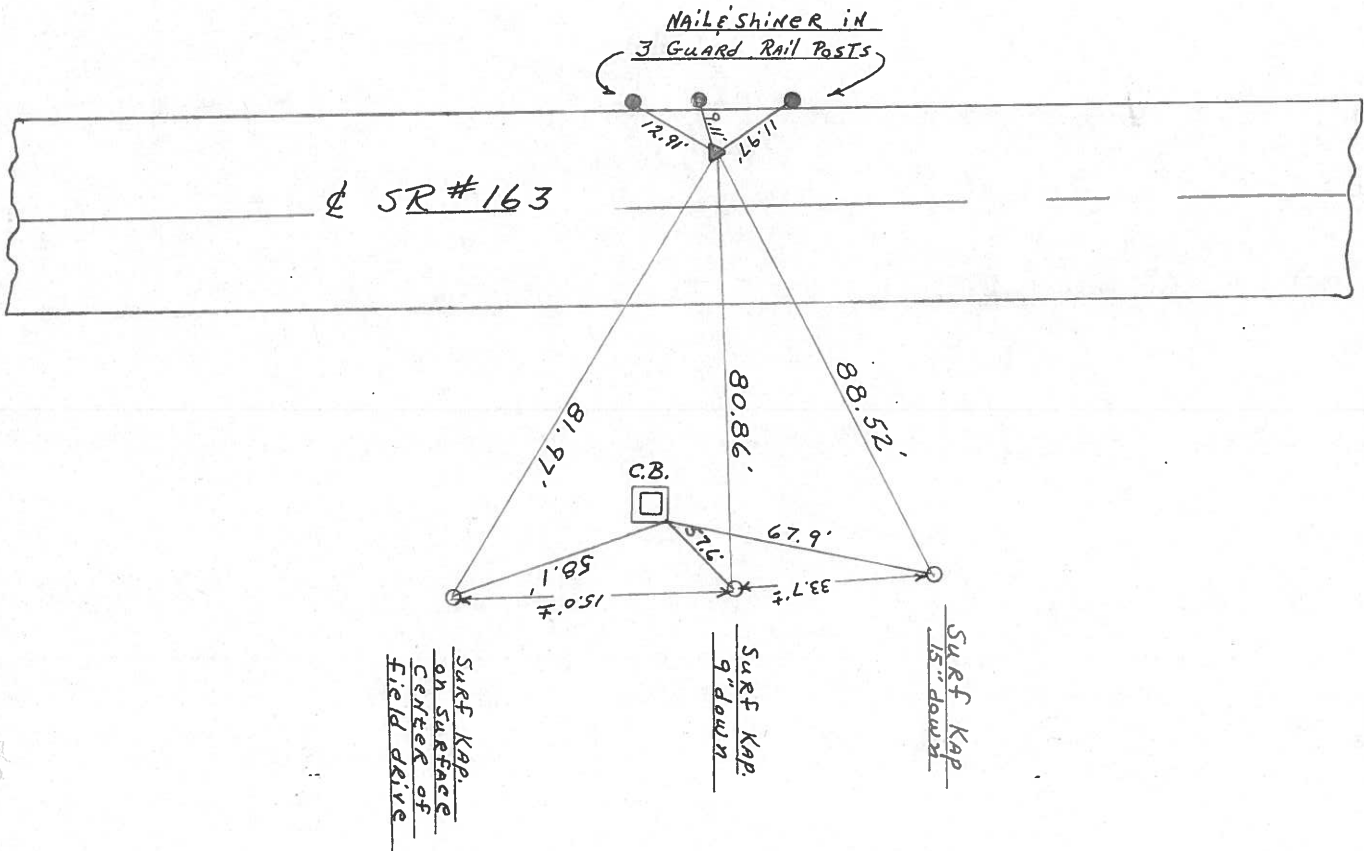 NAIL & SHINER IN
3 GUARD RAIL POSTS
12.91'
9.11'
11.97'
℄ SR #163
81.97'
80.86'
88.52'
C.B.
58.1'
57.6'
67.9'
15.0'±
33.7'±
SURF KAP.
on SURFACE
CENTER of
field drive
SURF KAP.
9" down
SURF KAP
15" down